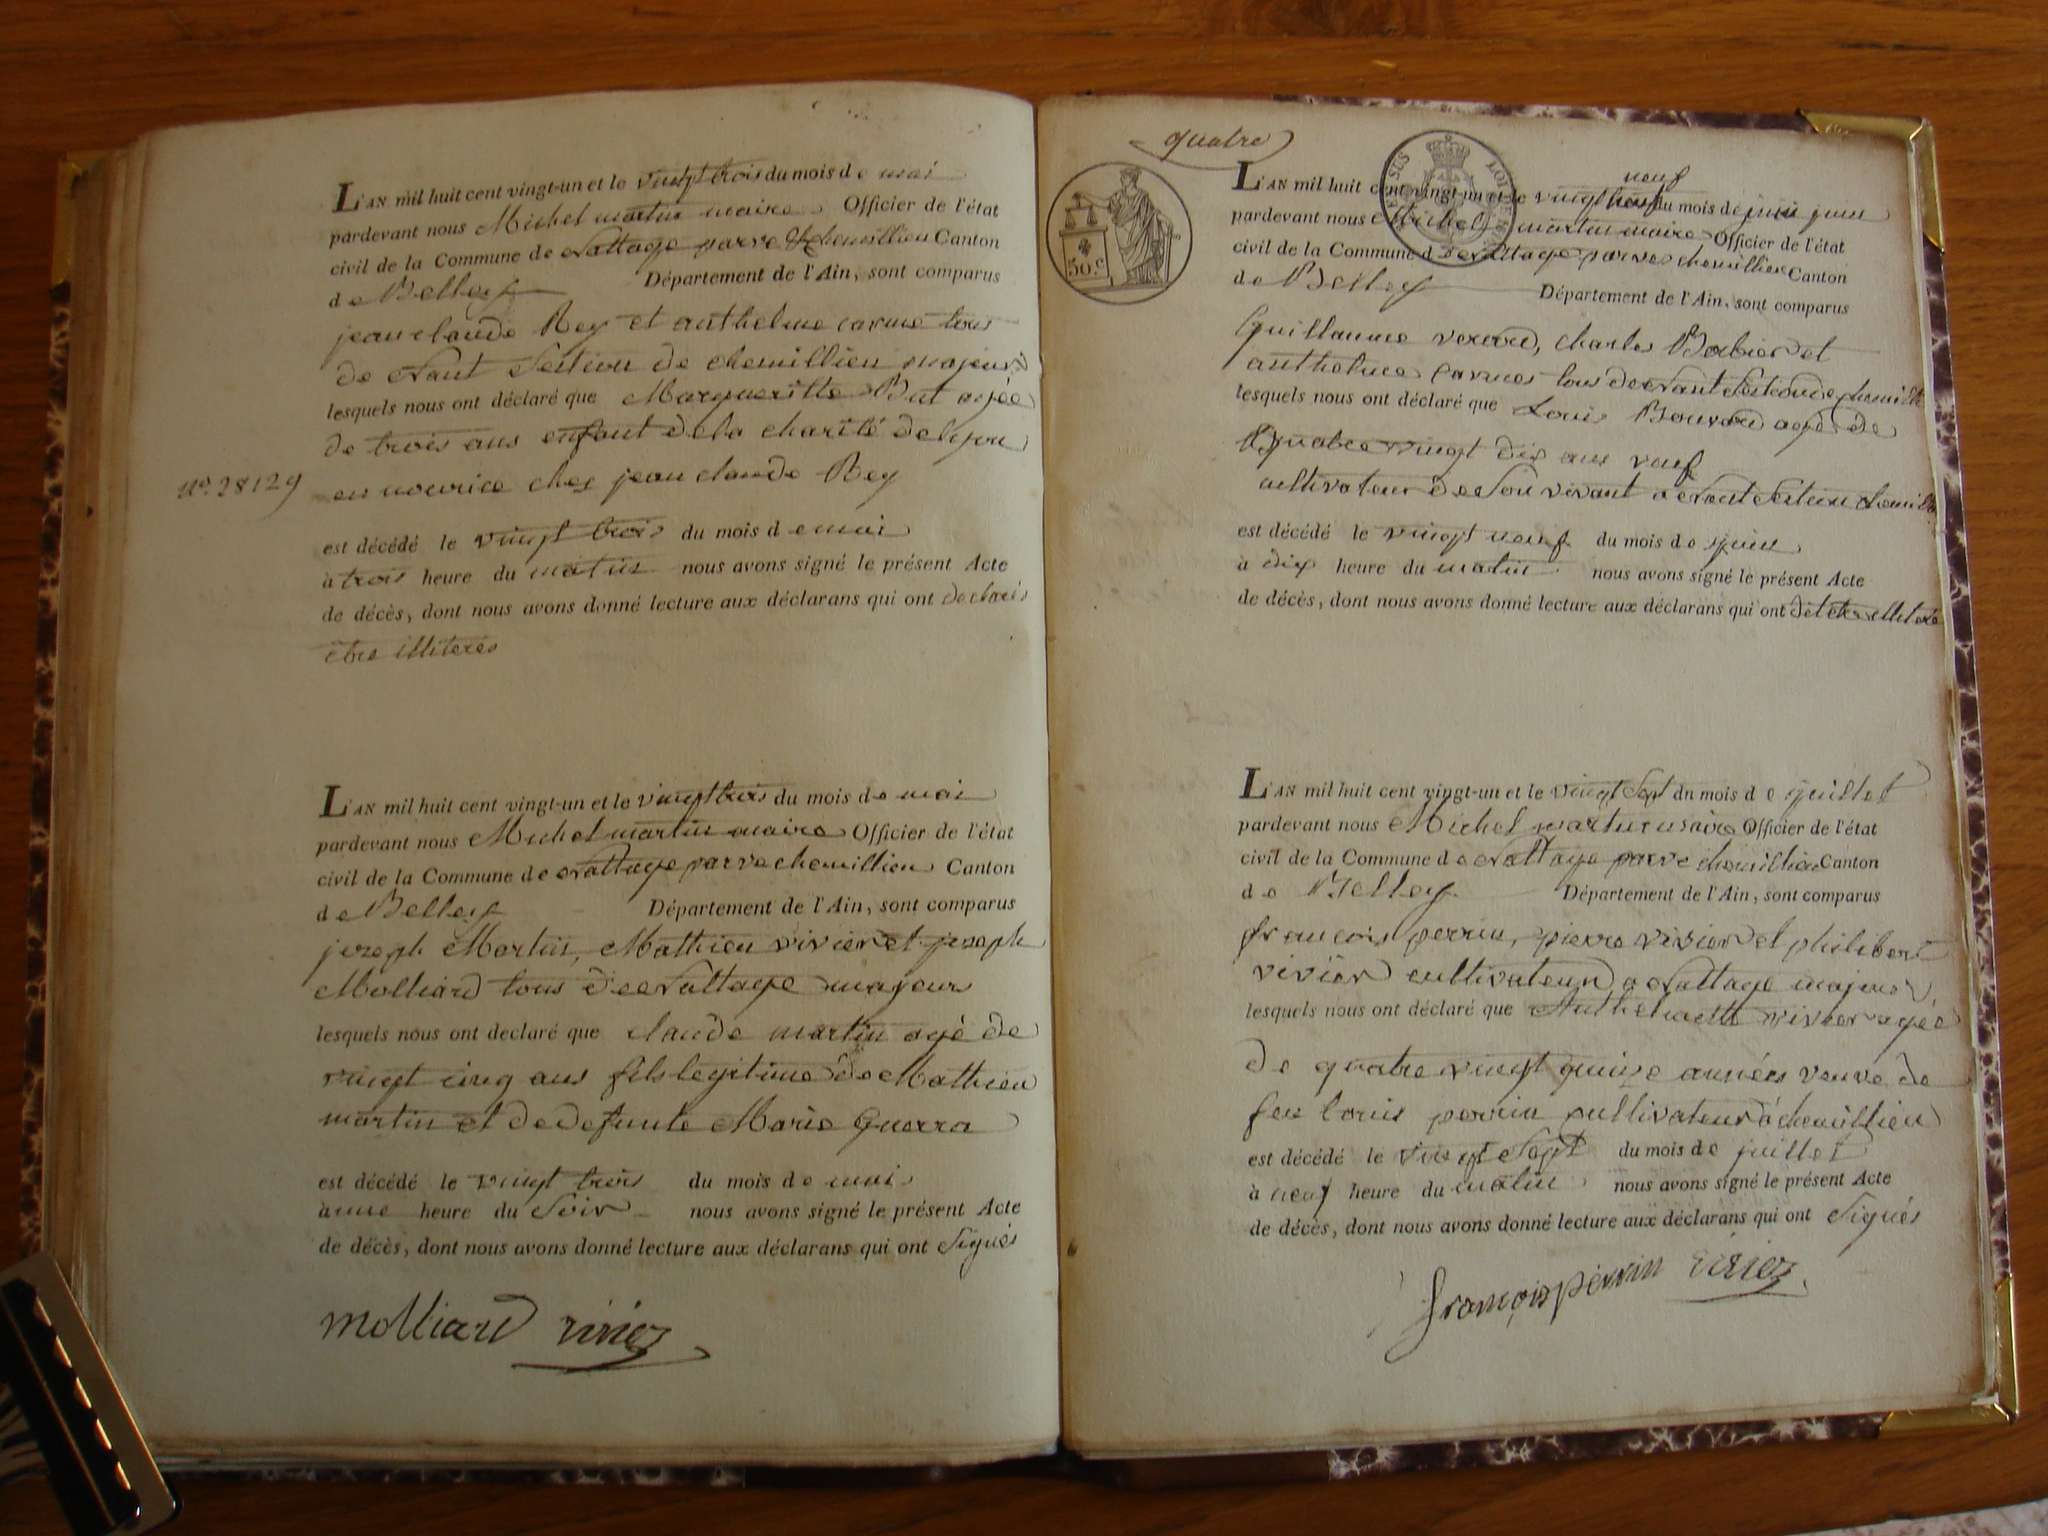 L'AN mil huit cent vingt-un et le vingt trois du mois de mai
pardevant nous Michel martin maire Officier de l'état
civil de la Commune de Nattage parve & chemillieu Canton
de Belley Département de l'Ain, sont comparus
jean claude Rey et anthelme carme tous
de Nant Section de chemillieu majeurs
lesquels nous ont déclaré que Margueritte But agée
de trois ans enfant de la charité de lyon
n.° 28129 en nourice chez jean claude Rey
est décédé le vingt trois du mois de mai
à trois heure du matin nous avons signé le présent Acte
de décès, dont nous avons donné lecture aux déclarans qui ont declarés
être illiterés
L'AN mil huit cent vingt-un et le vingt trois du mois de mai
pardevant nous Michel martin maire Officier de l'état
civil de la Commune de Nattage parve chemillieu Canton
de Belley Département de l'Ain, sont comparus
joseph Martin, Mathieu vivier et joseph
Molliard tous de Nattage majeurs
lesquels nous ont declaré que claude martin agé de
vingt cinq ans fils legitime de Mathieu
martin et de defunte Marie Guerra
est décédé le vingt trois du mois de mai
à une heure du Soir nous avons signé le présent Acte
de décès, dont nous avons donné lecture aux déclarans qui ont Signés
molliard vivier
quatre
50.c
L'AN mil huit cent vingt-un et le vingt neuf du mois de juin juin
pardevant nous Michel martin maire Officier de l'état
civil de la Commune de Nattage parves chemillieu Canton
de Belley Département de l'Ain, sont comparus
Guillaume, charles Barbier et
anthelme Carmes tous de Nant Section de
lesquels nous ont déclaré que Louis Bouvard agé de
quatre vingt dix ans veuf
cultivateur de Son vivant a Nant Section
est décédé le vingt neuf du mois de juin
à dix heure du matin nous avons signé le présent Acte
de décès, dont nous avons donné lecture aux déclarans qui ont dit être
L'AN mil huit cent vingt-un et le vingt Sept du mois de juillet
pardevant nous Michel martin maire Officier de l'état
civil de la Commune de Nattage parve chemillieu Canton
de Belley Département de l'Ain, sont comparus
francois perrin, pierre vivier et philibert
vivier cultivateurs a Nattage majeurs
lesquels nous ont déclaré que Anthelmette vivier agée
de quatre vingt quinze années veuve de
feu louis perrin cultivateur à chemillieu
est décédé le vingt Sept du mois de juillet
à neuf heure du matin nous avons signé le présent Acte
de décès, dont nous avons donné lecture aux déclarans qui ont Signés
françois perrin vivier